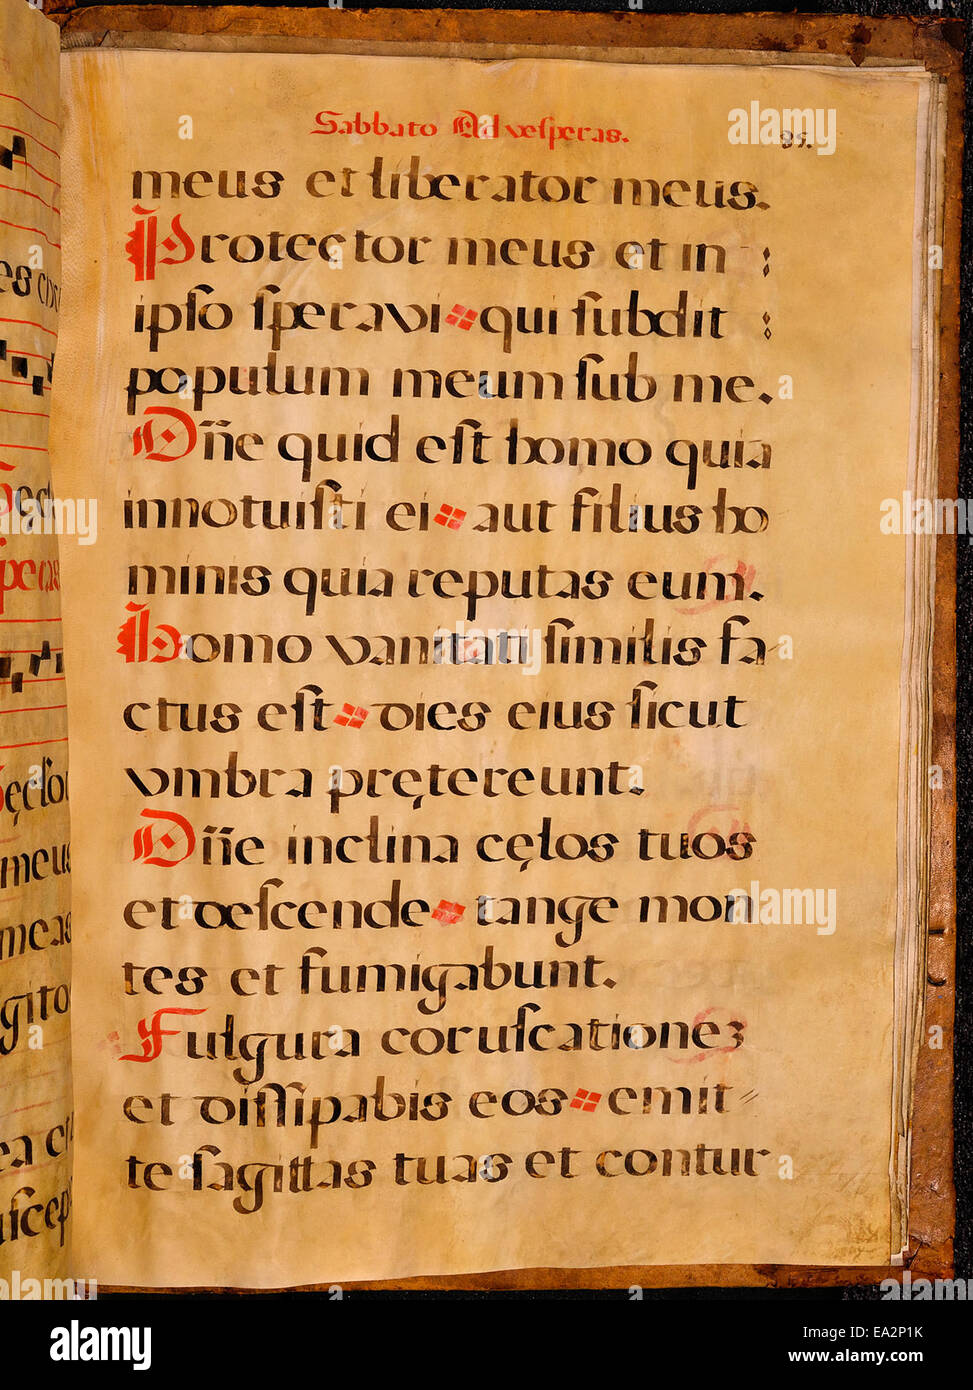 Sabbato Ad vesperas. 95.
meus et liberator meus.
Protector meus et in :
ipso speravi qui subdit :
populum meum sub me.
Dñe quid est homo quia
innotuisti ei aut filius ho
minis quia reputas eum.
Homo vanitati similis fa
ctus est dies eius sicut
vmbra prętereunt.
Dñe inclina cęlos tuos
et descende tange mon
tes et fumigabunt.
Fulgura coruscationes
et dissipabis eos emit=
te sagittas tuas et contur
meus
meas
gito
alamy
Image ID: EA2P1K
www.alamy.com